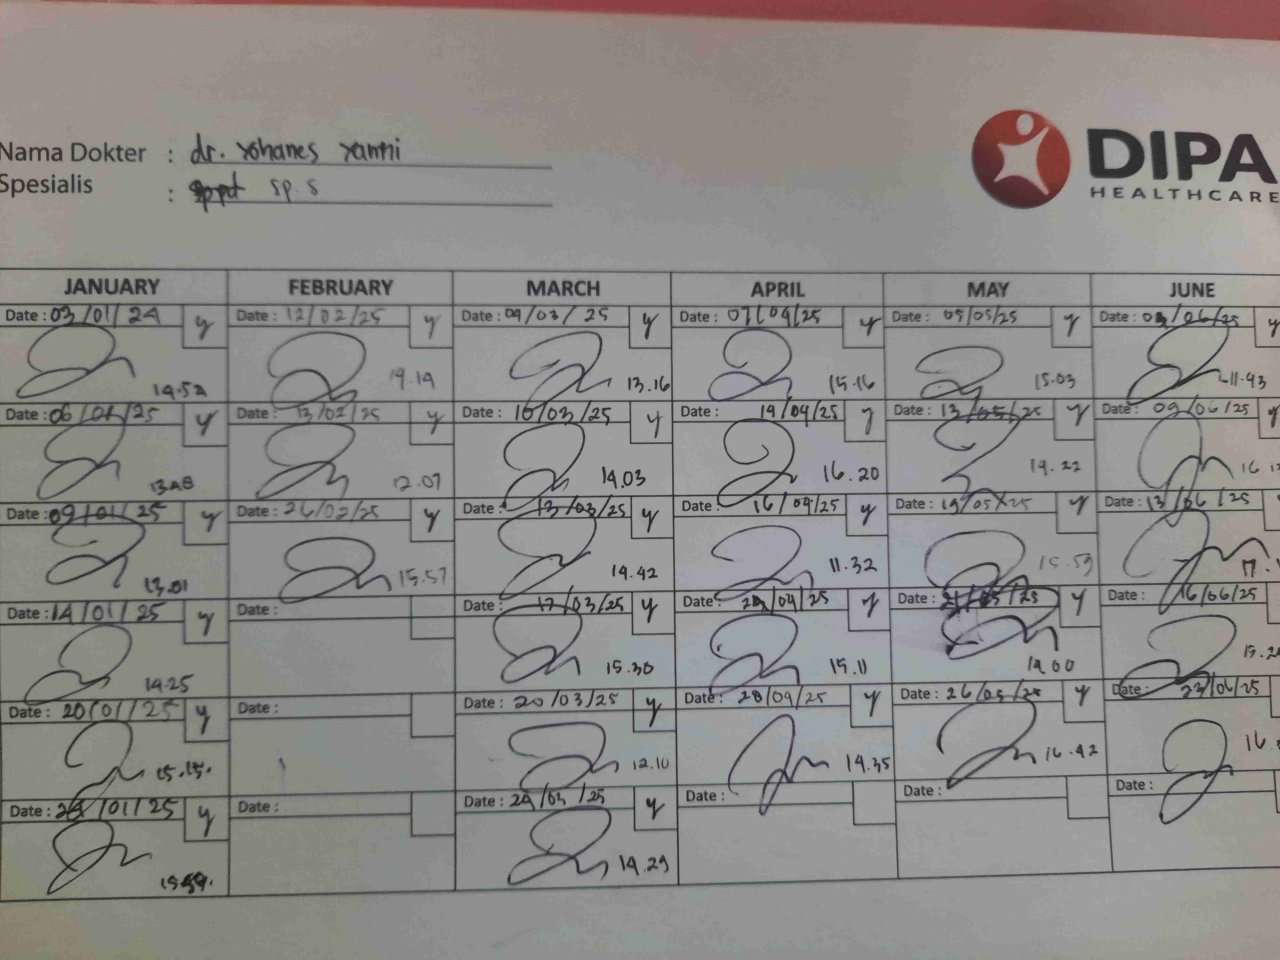 Nama Dokter : dr. Yohanes Yanni
DIPA
HEALTHCARE
Spesialis : Sp.S
JANUARY FEBRUARY MARCH APRIL MAY JUNE
Date : 03/01/24 y Date : 12/02/25 y Date : 04/03/25 y Date : 07/04/25 y Date : 05/05/25 y Date : /06/25 y
14.52 14.14 13.16 15.16 15.03 11.43
Date : 06/01/25 y Date : 13/02/25 y Date : 10/03/25 y Date : 14/04/25 y Date : 13/05/25 y Date : 09/06/25 y
12.07 14.03 16.20 14.22 16
Date : 09/01/25 y Date : 26/02/25 y Date : 13/03/25 y Date : 16/04/25 y Date : 19/05/25 y Date : 13/06/25
13.01 15.57 14.42 11.32 15.59 17.
Date : 14/01/25 y Date : Date : 17/03/25 y Date : /04/25 y Date : 21/05/25 y Date : 16/06/25
14.25 15.30 15.11 14.00 15.2
Date : 20/01/25 y Date : Date : 20/03/25 y Date : 28/04/25 y Date : 26/05/25 y Date : 23/06/25
15.15. 12.10 14.35 16.42 16.
Date : /01/25 y Date : Date : 24/03/25 y Date : Date : Date :
14.29